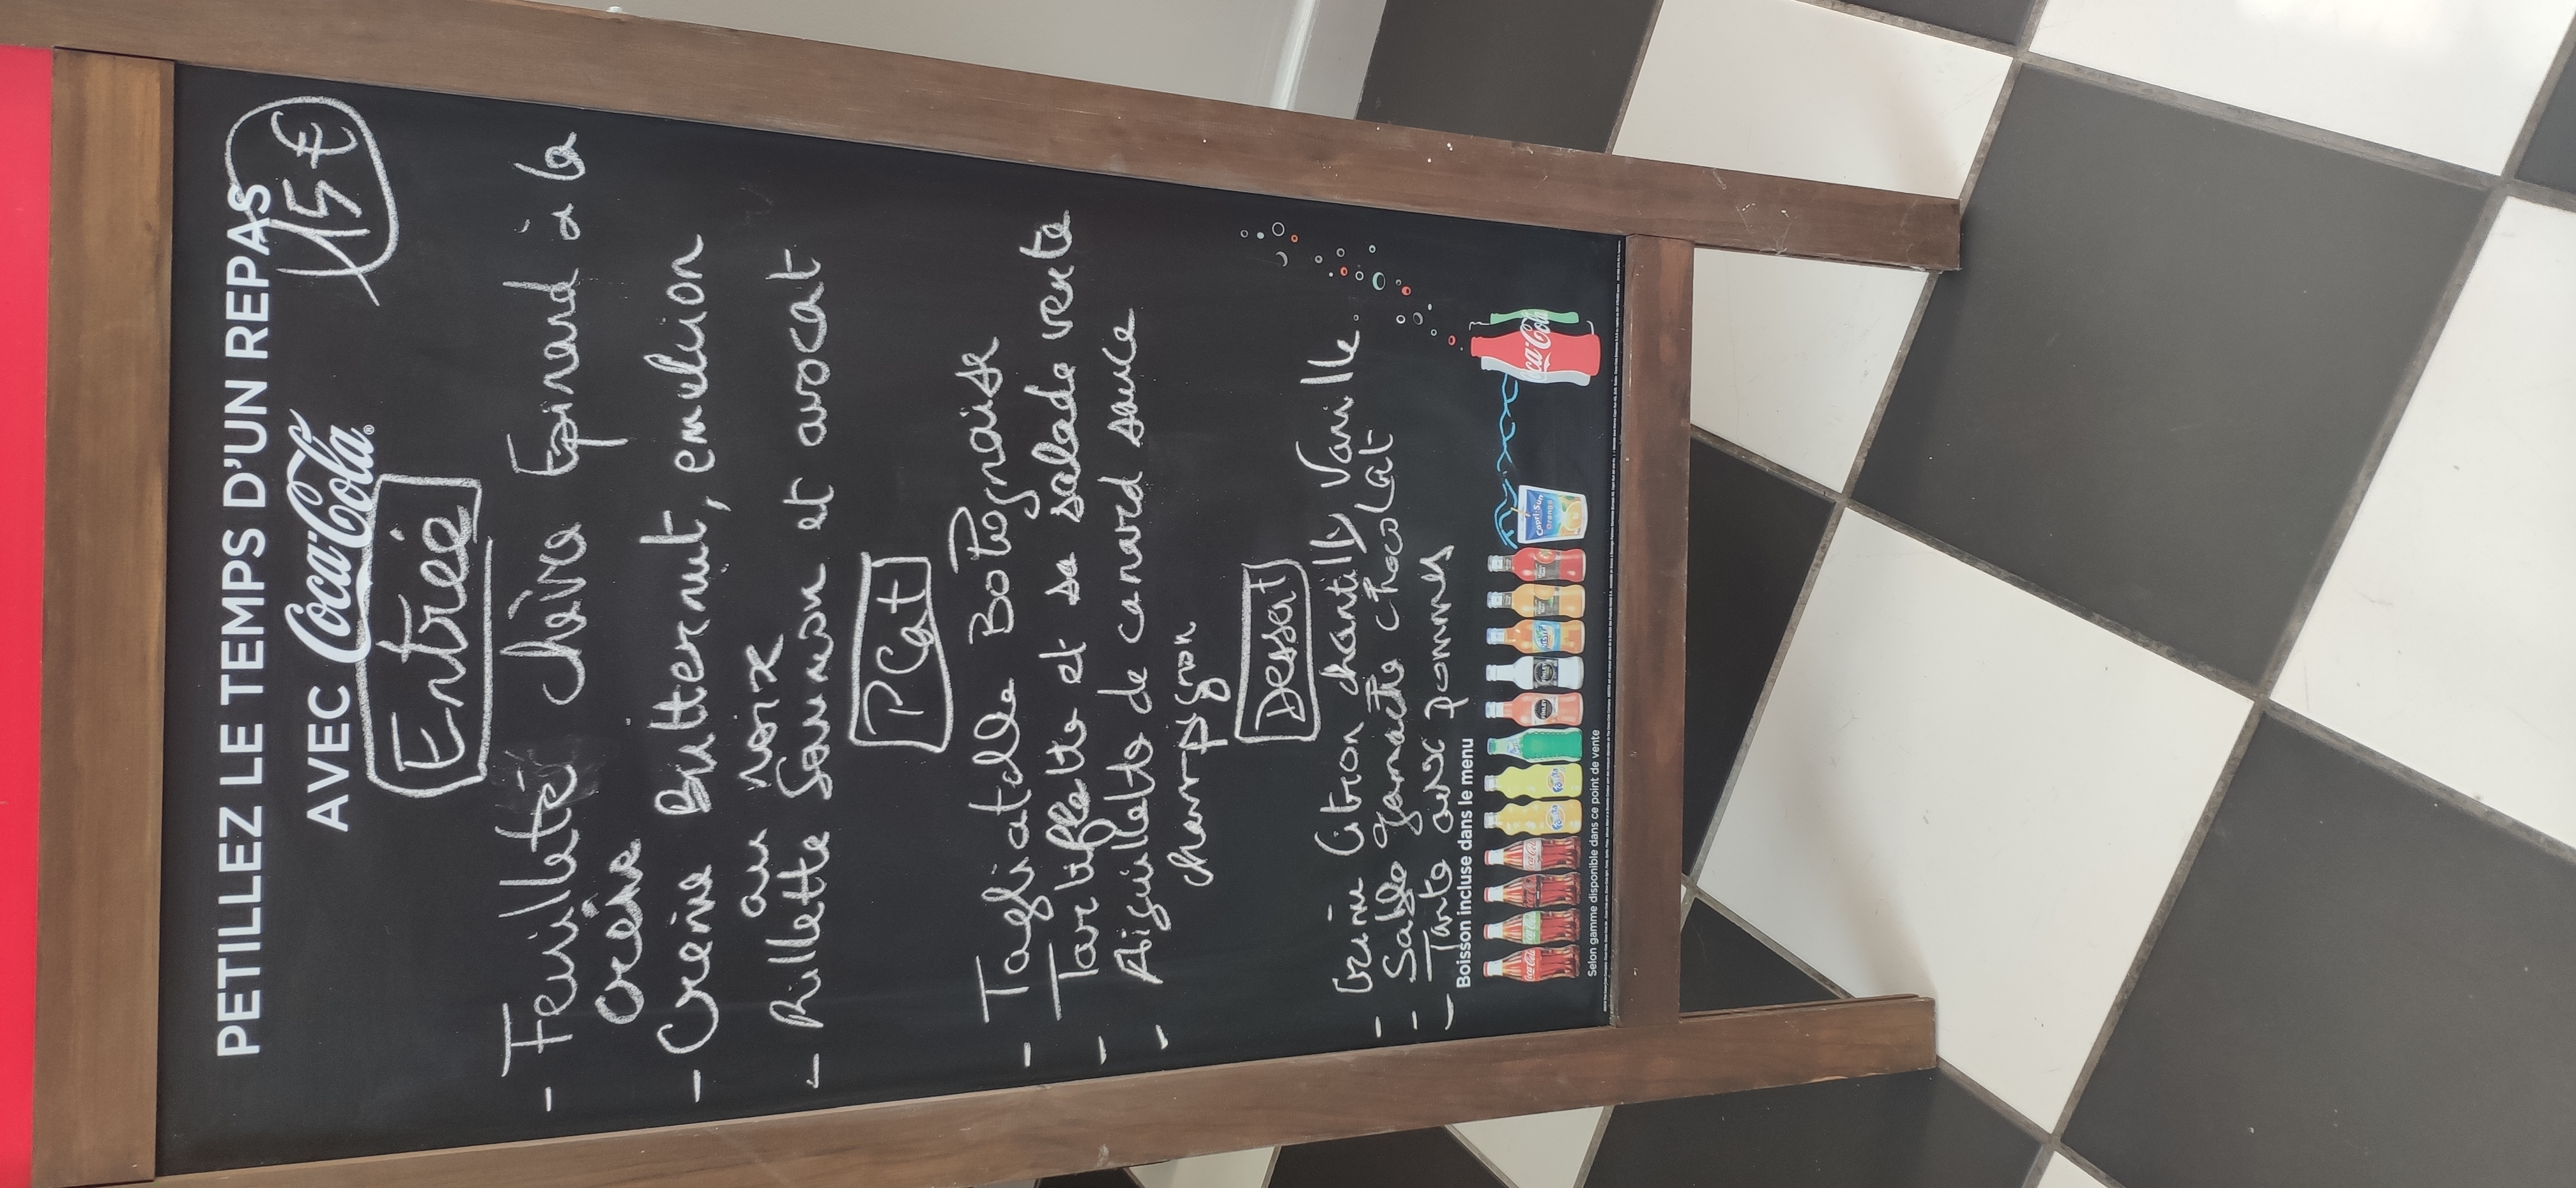 PETILLEZ LE TEMPS D'UN REPAS
AVEC Coca-Cola®
15 €
Entrée
- Feuilleté chèvre Epinard à la
crème
- Crème Butternut, emulsion
au noix
- Rillette Saumon et avocat
Plat
- Tagliatelle Bolognaise
- Tartiflette et sa salade verte
- Aiguillette de canard sauce
champignon
Dessert
- Citron chantilly Vanille
- Sablé ganache chocolat
- Tarte aux pommes
Boisson incluse dans le menu
Coca-Cola
Capri-Sun
Orange
Selon gamme disponible dans ce point de vente